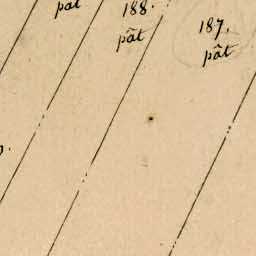 pât
188.
pât
187.
pât